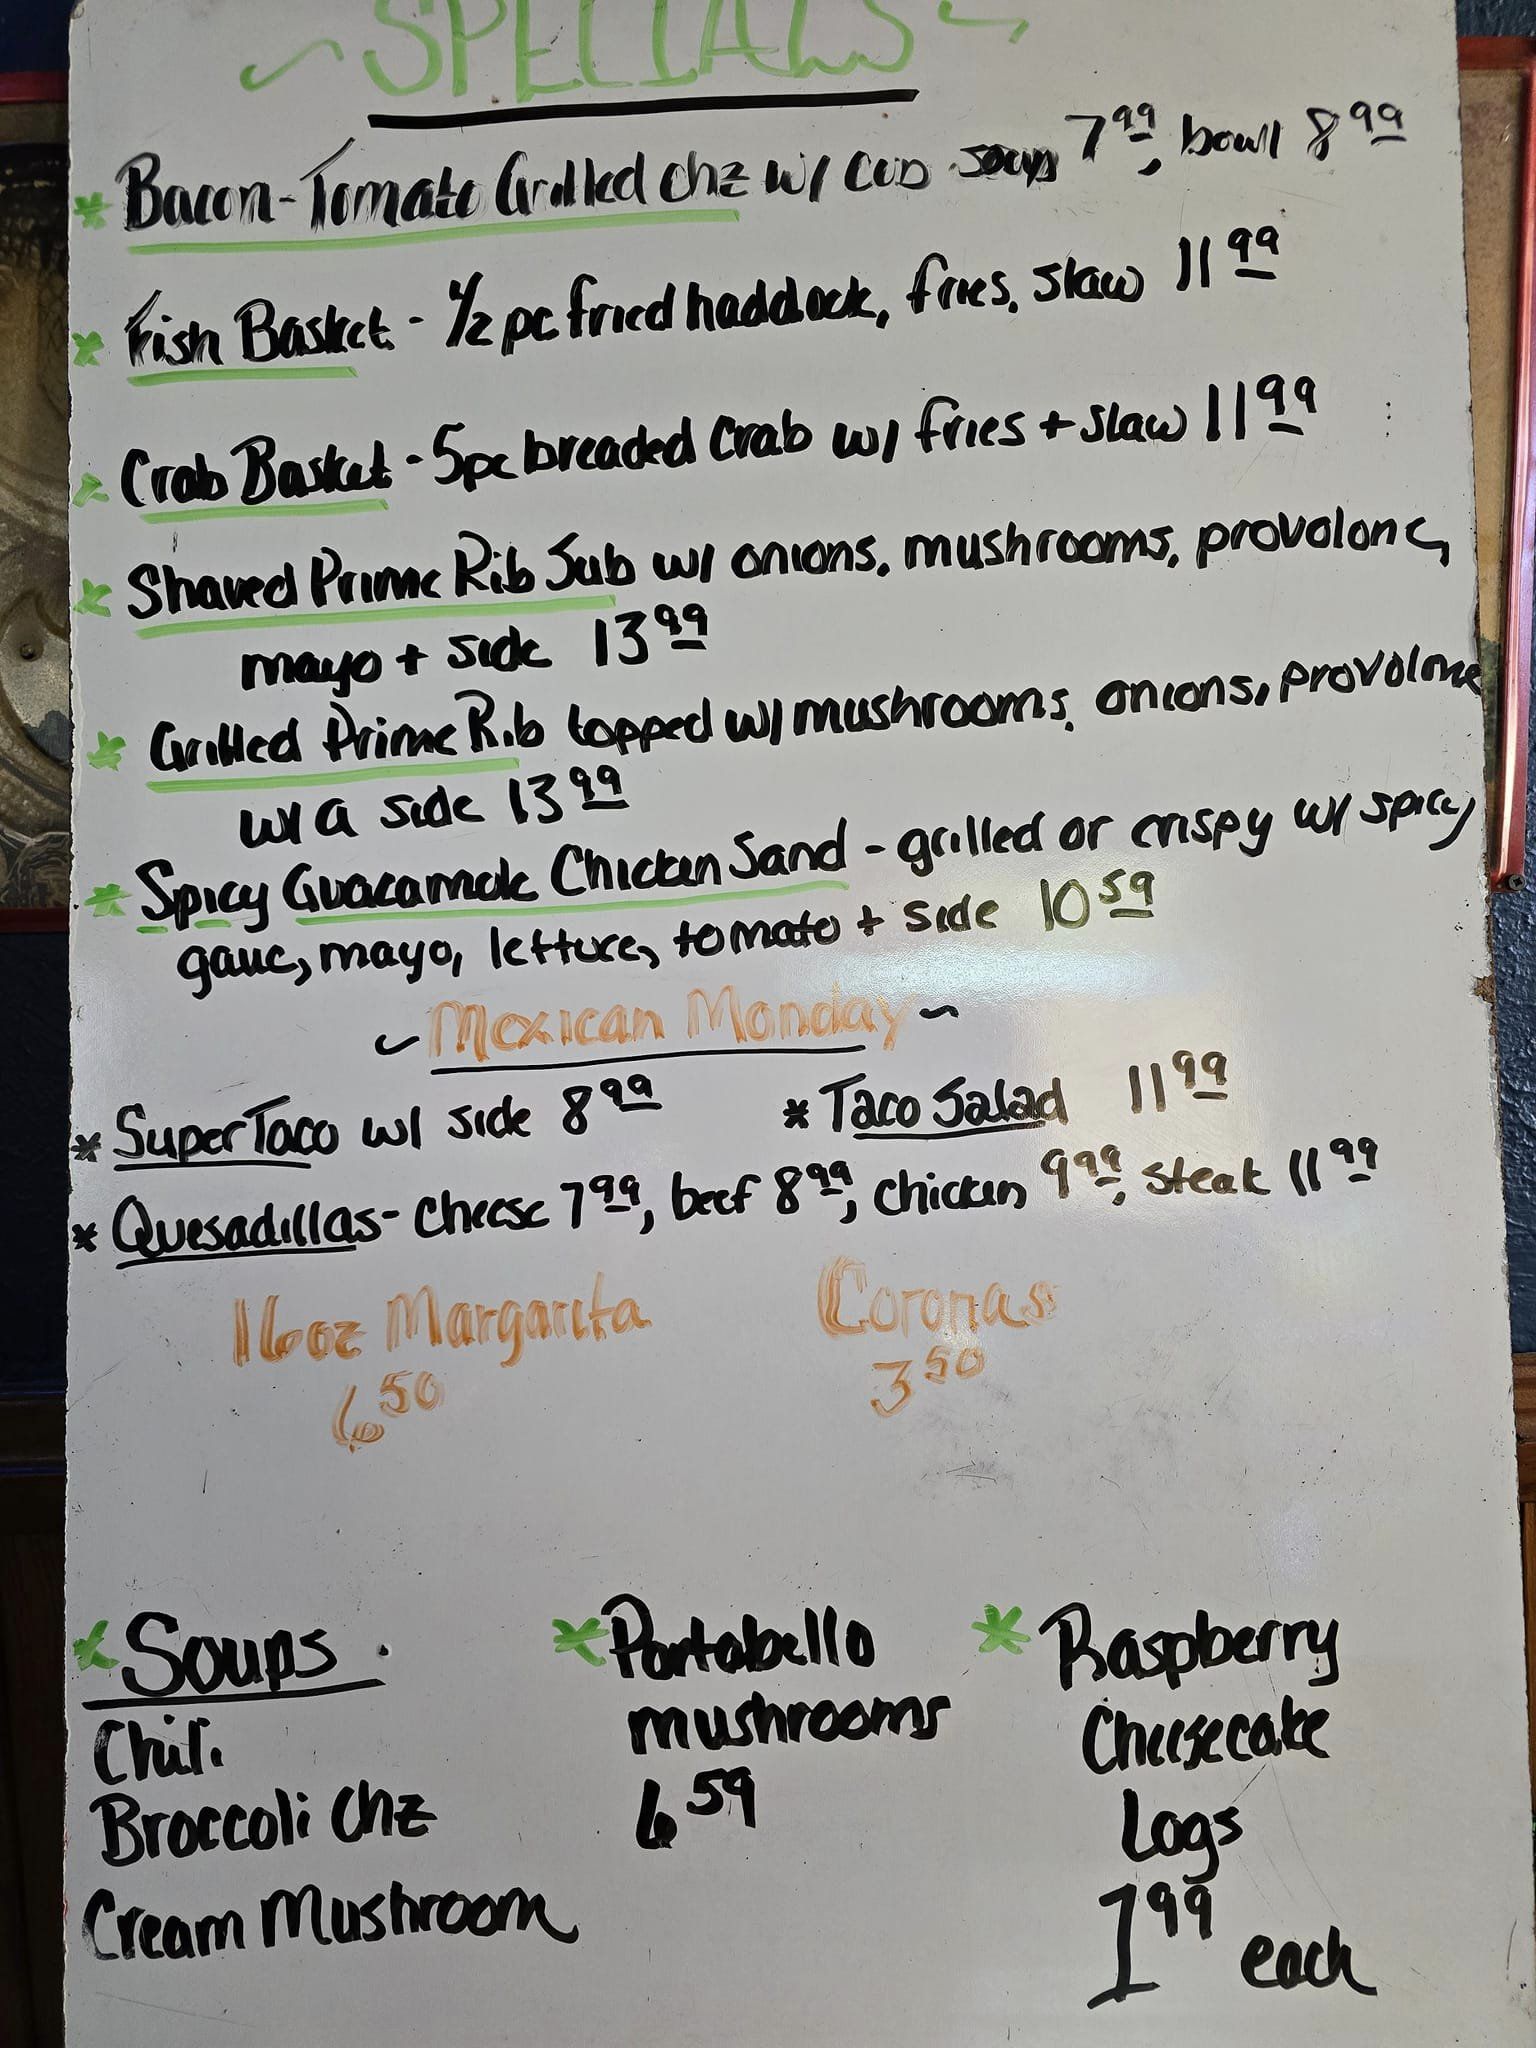 ~ SPECIALS ~
* Bacon-Tomato Grilled chz w/ cup soup 7 99, bowl 8 99
* Fish Basket - 1/2 pc fried haddock, fries, slaw 11 99
* Crab Basket - 5pc breaded crab w/ fries + slaw 11 99
* Shaved Prime Rib Sub w/ onions, mushrooms, provolone,
mayo + side 13 99
* Grilled Prime Rib topped w/ mushrooms, onions, provolone
w/ a side 13 99
* Spicy Guacamole Chicken Sand - grilled or crispy w/ spicy
gauc, mayo, lettuce, tomato + side 10 59
~ Mexican Monday ~
* Super Taco w/ side 8 99 * Taco Salad 11 99
* Quesadillas - cheese 7 99, beef 8 99, chicken 9 99, steak 11 99
16oz Margarita Coronas
6 50 3 50
* Soups * Portabello * Raspberry
Chili mushrooms Cheesecake
Broccoli Chz 6 59 Logs
Cream Mushroom 1 99 each